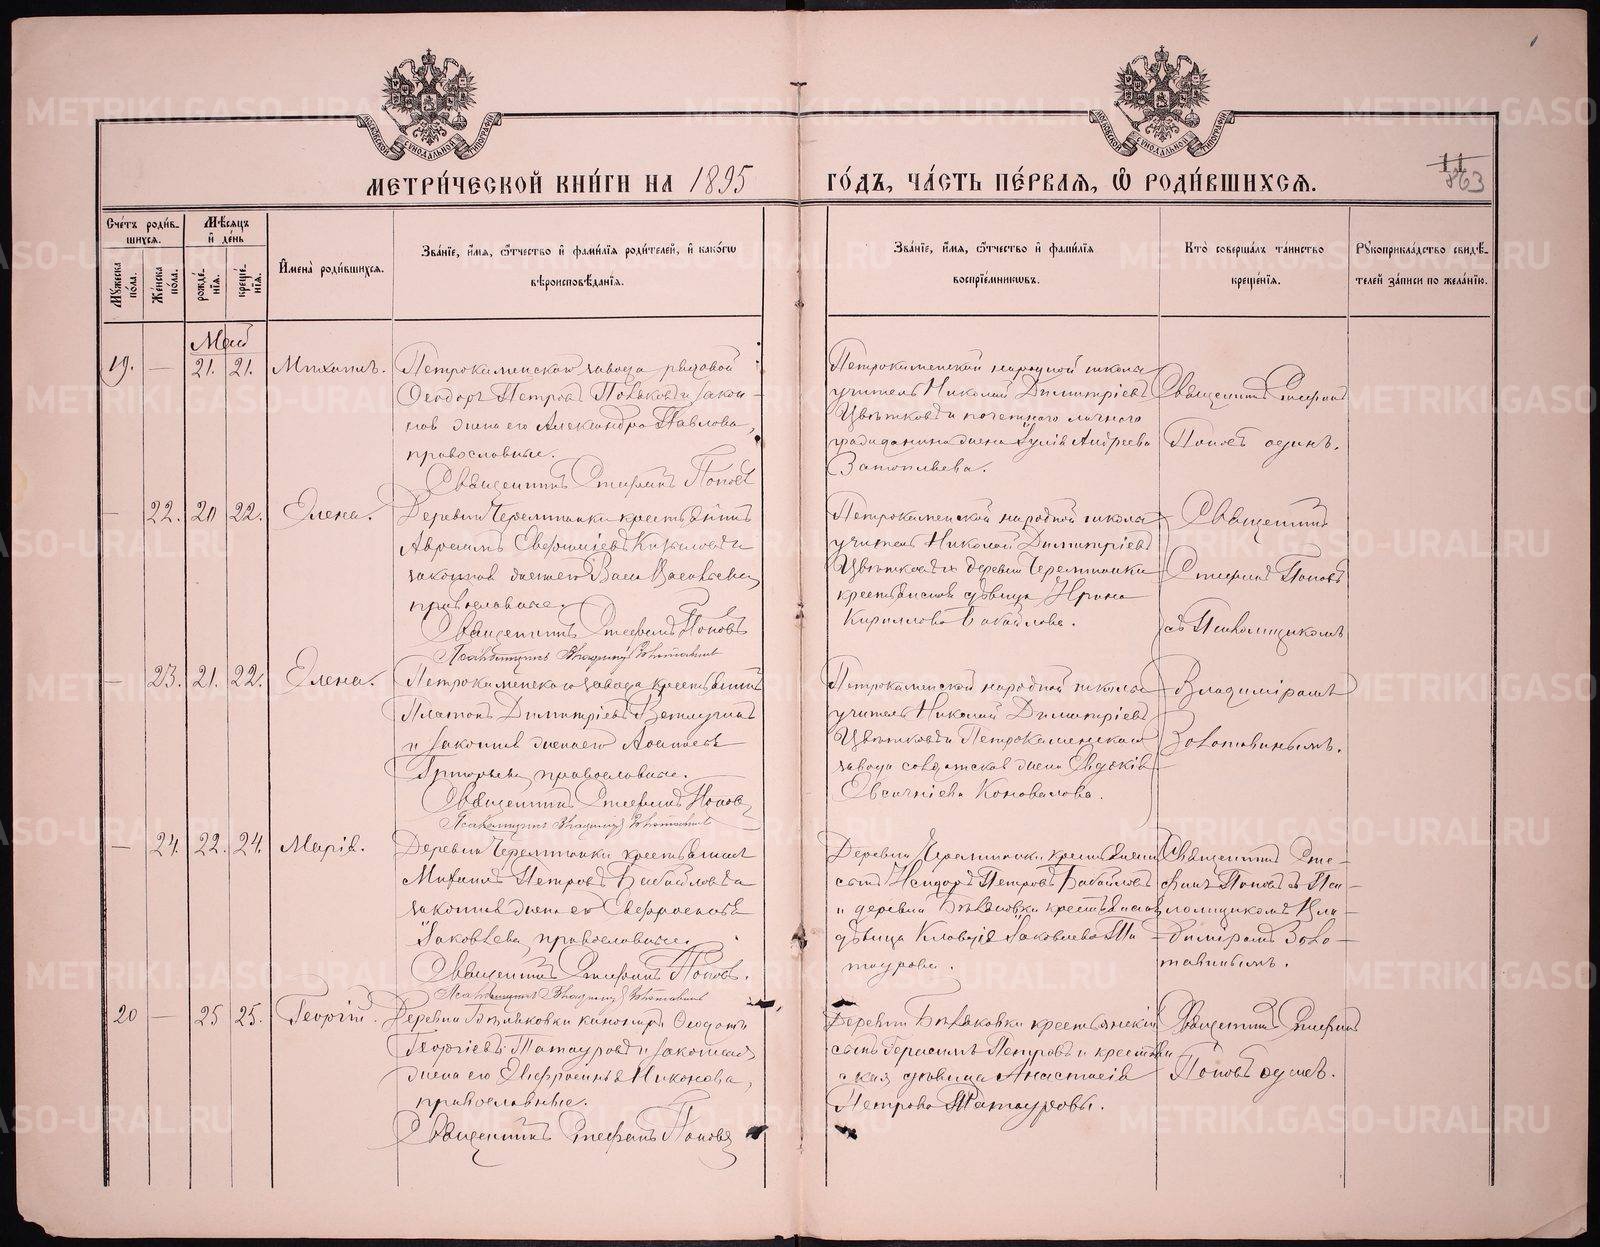 МЕТРИ́ЧЕСКОЙ КНИ́ГИ НА 1895
ГО́ДЪ, ЧА́СТЬ ПЕ́РВАЯ, Ѡ҆ РОДИ́ВШИХСЯ.
863
Сче́тъ роди́вшихся.
Мѣ́сяцъ и҆ де́нь
И҆мена̀ роди́вшихся.
Зва́нїе, и҆́мя, ѻ҆́тчество и҆ фами́лїя роди́телей, и҆ како́гѡ
вѣроисповѣ́данїя.
Зва́нїе, и҆́мя, ѻ҆́тчество и҆ фами́лїя
воспрїе́мникѡвъ.
Кто̀ соверша́лъ та́инство
креще́нїя.
Рꙋкоприкла́дство свидѣ́-
телей за́писи по жела́нїю.
Мꙋ́жеска по́ла.
Же́нска по́ла.
рожде́нїя.
креще́нїя.
Май
19. — 21. 21. Михаилъ.
Петрокаменского завода рядовой
Ѳеодоръ Петровъ Поляковъ и закон-
ная жена его Александра Павлова,
православные.
Священникъ Стефанъ Поповъ
Петрокаменской народной школы
учитель Николай Димитріевъ
Цвѣтковъ и почетнаго личнаго
гражданина жена Юлія Андреева
Священникъ Стефанъ
Поповъ одинъ.
— 22. 20 22. Елена.
Деревни Черемшанки крестьянинъ
законная жена его
православные.
Священникъ Стефанъ Поповъ
Псаломщикъ Владиміръ
Петрокаменской народной школы
учитель Николай Димитріевъ
Цвѣтковъ и деревни Черемшанки
крестьянская дѣвица Ирина
Кириллова Бабайлова.
Священникъ
Стефанъ Поповъ
съ Псаломщикомъ
— 23. 21. 22. Елена.
Петрокаменскаго завода крестьянинъ
Платонъ Димитріевъ
и законная жена его
Григорьева, православные.
Священникъ Стефанъ Поповъ
Псаломщикъ Владиміръ
Петрокаменской народной школы
учитель Николай Димитріевъ
Цвѣтковъ и Петрокаменскаго
завода солдатская жена Евдокія
Коновалова.
Владиміромъ
— 24. 22. 24. Марія.
Деревни Черемшанки крестьянинъ
Михаилъ Петровъ Бабайловъ и
законная жена его Евфросинія
Яковлева, православные.
Священникъ Стефанъ Поповъ.
Псаломщикъ Владиміръ
Деревни Черемшанки крестьянскій
сынъ Исидоръ Петровъ Бабайловъ
и деревни Бѣляковки крестьянская
дѣвица Клавдія Яковлева Та-
таурова.
Священникъ Сте-
фанъ Поповъ съ Пса-
ломщикомъ Вла-
диміромъ
20 — 25 25. Георгій.
Деревни Бѣляковки
Георгіевъ Татауровъ и законная
жена его Евфросинія Никонова,
православные.
Священникъ Стефанъ Поповъ
Деревни Бѣляковки крестьянскій
сынъ Герасимъ Петровъ и крестьян-
ская дѣвица Анастасія
Петрова Татауровы.
Священникъ Стефанъ
Поповъ одинъ.
METRIKI.GASO-URAL.RU